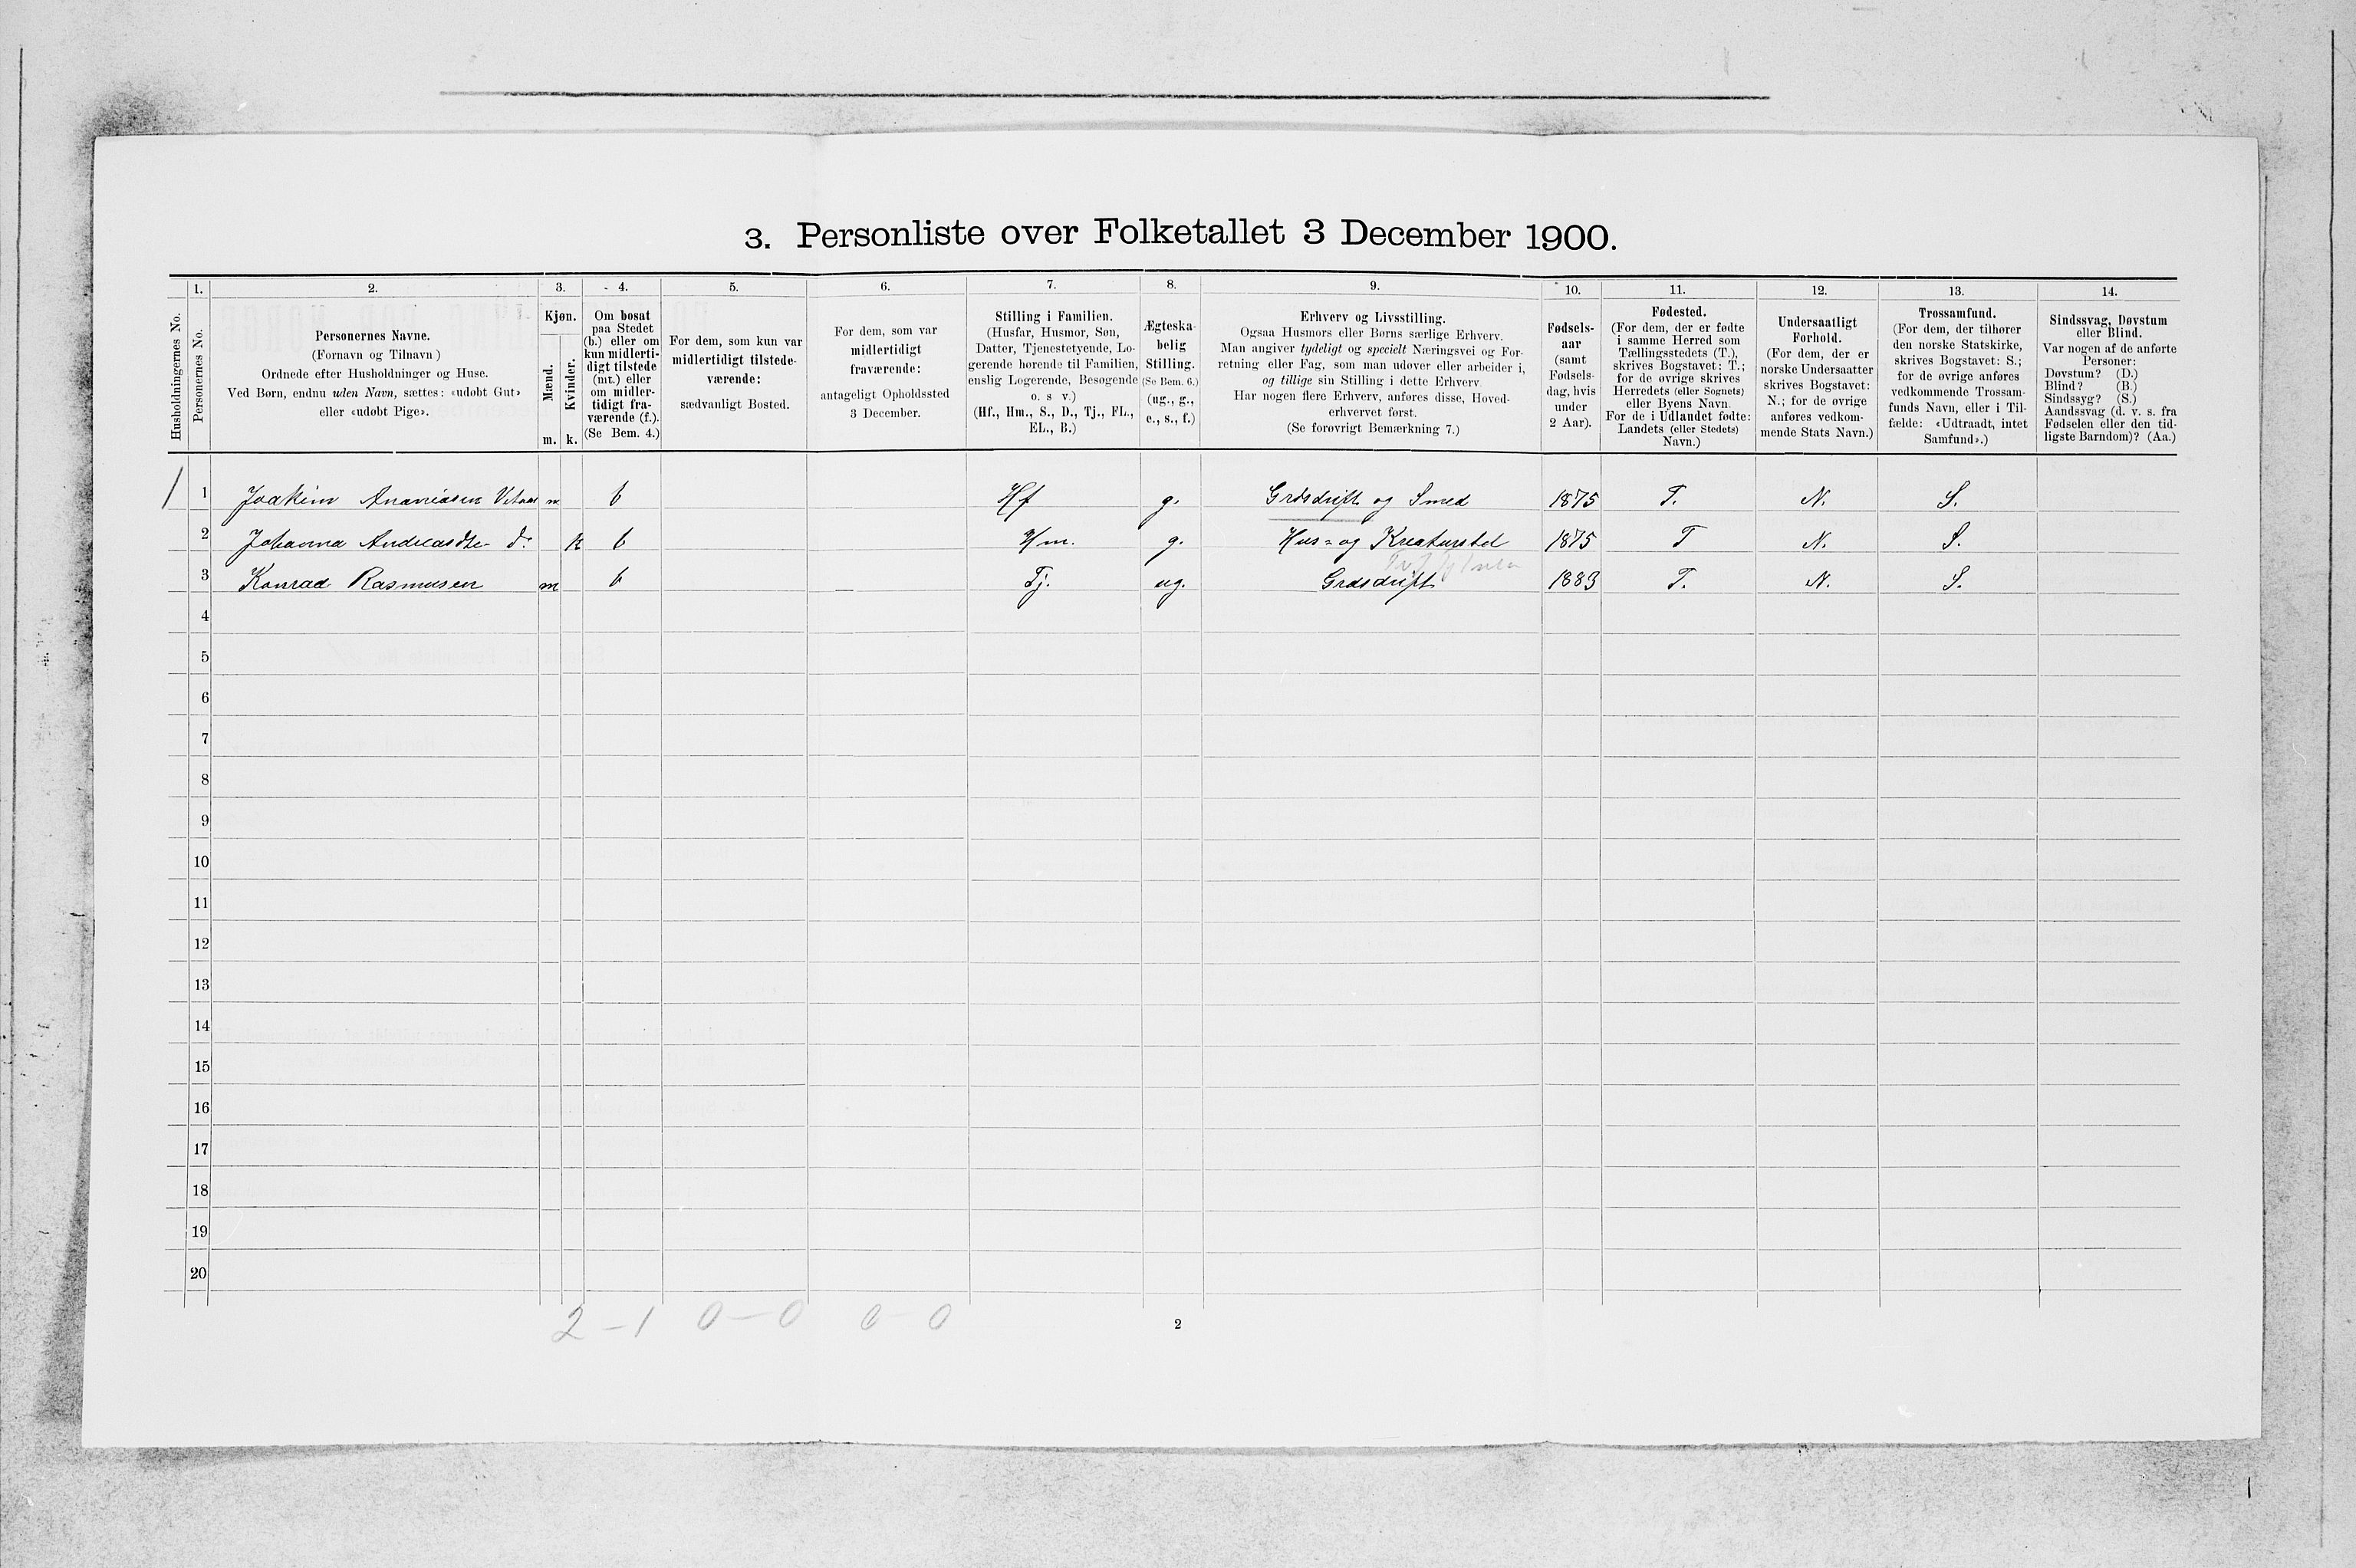 3. Personliste over Folketallet 3 December 1900.
Husholdningernes No.
1.
Personernes No.
2.
Personernes Navne.
(Fornavn og Tilnavn )
Ordnede efter Husholdninger og Huse.
Ved Børn, endnu uden Navn, sættes: «udøbt Gut»
eller «udøbt Pige».
3.
Kjøn.
Mænd.
Kvinder.
m. k.
4.
Om bosat
paa Stedet
(b.) eller om
kun midlerti-
digt tilstede
(mt.) eller
om midler-
tidigt fra-
værende (f.).
(Se Bem. 4.)
5.
For dem, som kun var
midlertidigt tilstede-
værende:
sædvanligt Bosted.
6.
For dem, som var
midlertidigt
fraværende:
antageligt Opholdssted
3 December.
7.
Stilling i Familien.
(Husfar, Husmor, Søn,
Datter, Tjenestetyende, Lo-
gerende hørende til Familien,
enslig Logerende, Besøgende
o. s v.)
(Hf., Hm., S., D., Tj., FL.,
EL., B.)
8.
Ægteska-
belig
Stilling.
(Se Bem. 6.)
(ug., g.,
e., s., f.)
9.
Erhverv og Livsstilling.
Ogsaa Husmors eller Børns særlige Erhverv.
Man angiver tydeligt og specielt Næringsvei og For-
retning eller Fag, som man udøver eller arbeider i,
og tillige sin Stilling i dette Erhverv.
Har nogen flere Erhverv, anføres disse, Hoved-
erhvervet først.
(Se forøvrigt Bemærkning 7.)
10.
Fødsels-
aar
(samt
Fødsels-
dag, hvis
under
2 Aar).
11.
Fødested.
(For dem, der er fødte
i samme Herred som
Tællingsstedets (T.),
skrives Bogstavet: T.;
for de øvrige skrives
Herredets (eller Sognets)
eller Byens Navn.
For de i Udlandet fødte:
Landets (eller Stedets)
Navn.)
12.
Undersaatligt
Forhold.
(For dem, der er
norske Undersaatter
skrives Bogstavet:
N.; for de øvrige
anføres vedkom-
mende Stats Navn.)
13.
Trossamfund.
(For dem, der tilhører
den norske Statskirke,
skrives Bogstavet: S.;
for de øvrige anføres
vedkommende Trossam-
funds Navn, eller i Til-
fælde: «Udtraadt, intet
Samfund».)
14.
Sindssvag, Døvstum
eller Blind.
Var nogen af de anførte
Personer:
Døvstum? (D.)
Blind? (B.)
Sindssyg? (S.)
Aandssvag (d. v. s. fra
Fødselen eller den tid-
ligste Barndom)? (Aa.)
1 1 Joakim Ananiasen m b Hf g. Grdsdrift og Smed 1875 T. N. S.
2 Johanna Andreasdtr d: k b Hm. g. Hus- og Kreaturstel 1875 T N. S.
3 Konrad Rasmusen m b Tj. ug. Grdsdrift 1883 T. N. S.
4
5
6
7
8
9
10
11
12
13
14
15
16
17
18
19
20
2 - 1 0 - 0 0 - 0
2